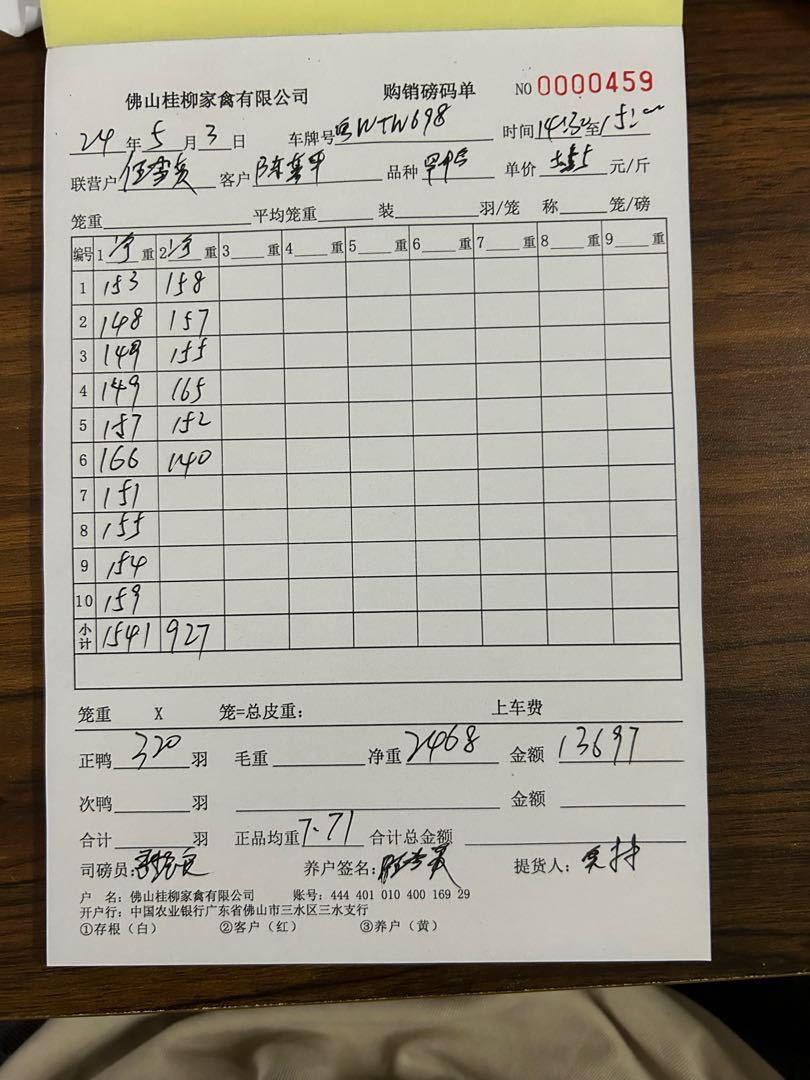 佛山桂柳家禽有限公司 购销磅码单 NO 0000459
24 年 5 月 3 日 车牌号 WTW698 时间 14:30 至
联营户 客户 陈 品种 单价 5.55 元/斤
笼重 平均笼重 装 羽/笼 称 笼/磅
编号 1 重 2 重 3 重 4 重 5 重 6 重 7 重 8 重 9 重
1 153 158
2 148 157
3 149 155
4 149 165
5 157 152
6 166 140
7 151
8 155
9 154
10 159
小计 1541 927
笼重 X 笼=总皮重: 上车费
正鸭 320 羽 毛重 净重 2468 金额 13697
次鸭 羽 金额
合计 羽 正品均重 7.71 合计总金额
司磅员: 养户签名: 提货人:
户 名: 佛山桂柳家禽有限公司 账号: 444 401 010 400 169 29
开户行: 中国农业银行广东省佛山市三水区三水支行
①存根（白） ②客户（红） ③养户（黄）